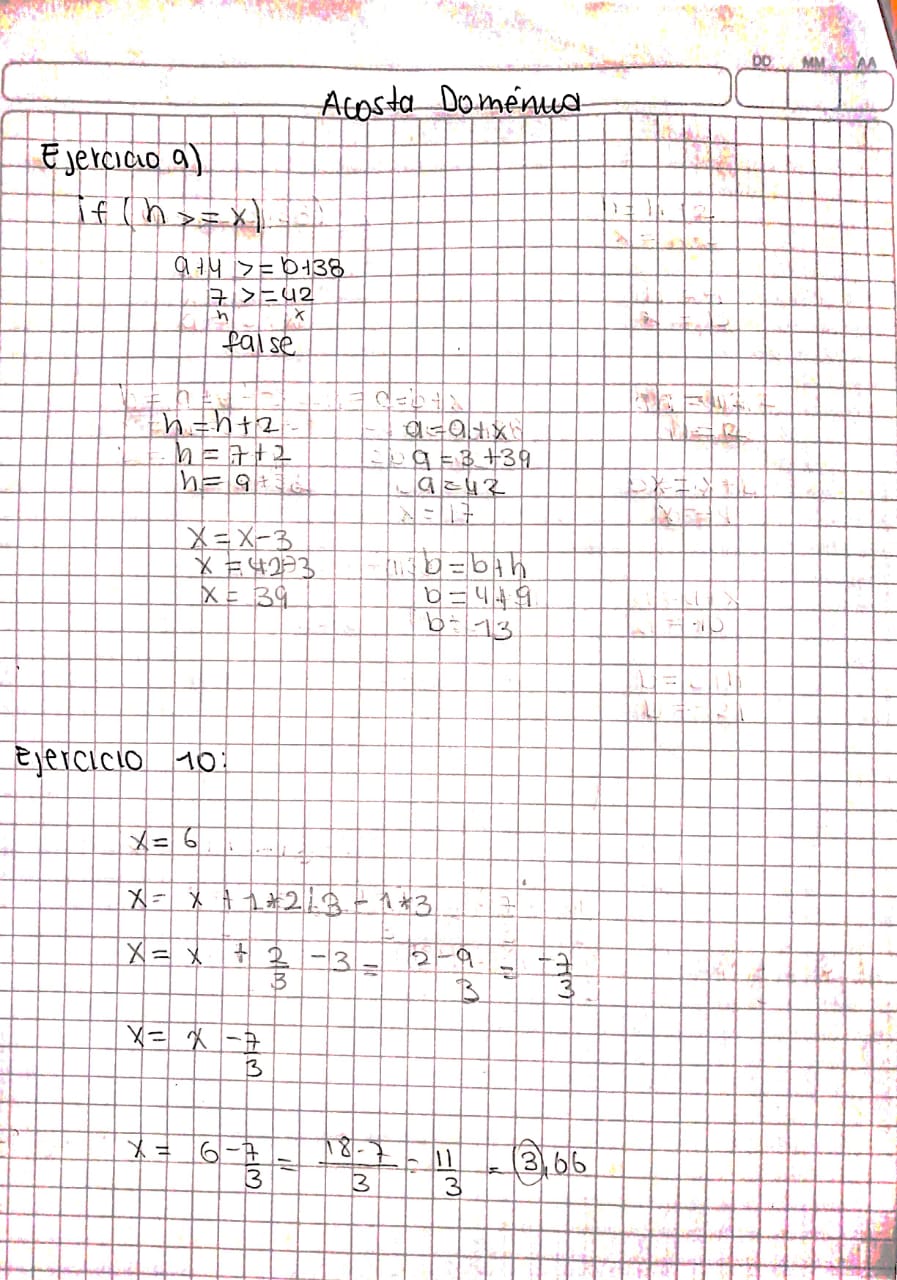 DD MM AA
Acosta Doménica
Ejercicio 9)
if (h >= x)
a+4 >= b+38
7 >= 42
h x
false
h = h+2
h = 7+2
h = 9
x = x-3
x = 42-3
x = 39
a = a+x
a = 3+39
a = 42
b = b+h
b = 4+9
b = 13
Ejercicio 10:
x = 6
x = x + 1*2/3 - 1*3
x = x + 2/3 - 3 = 2-9/3 = -7/3
x = x - 7/3
x = 6 - 7/3 = 18-7/3 = 11/3 = 3,66